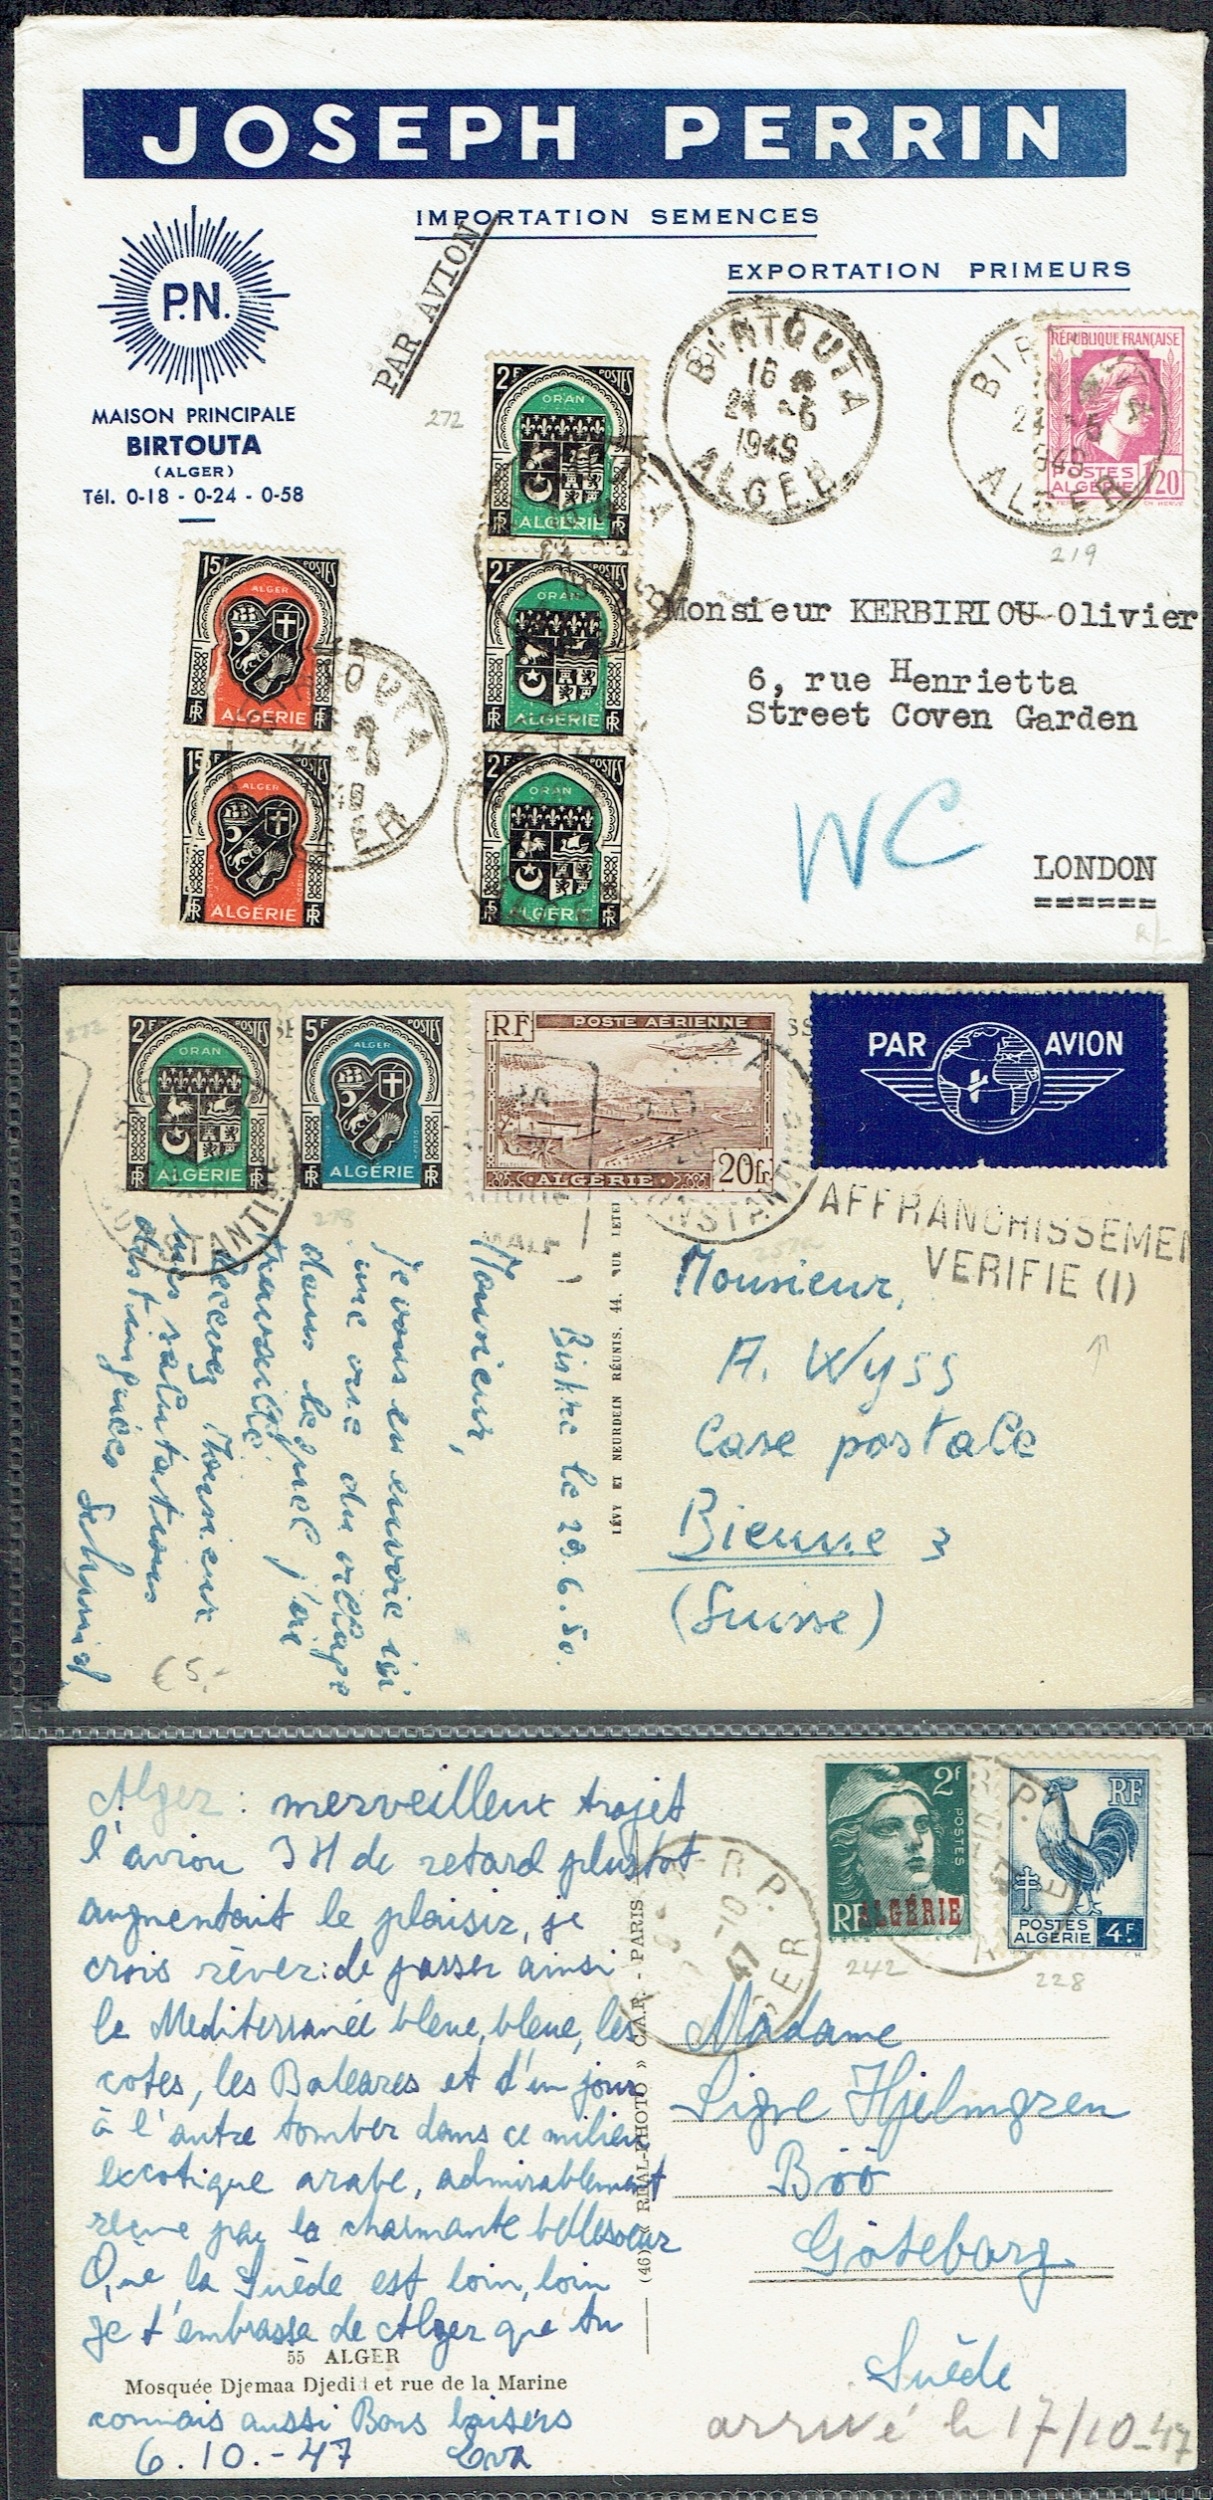 JOSEPH PERRIN
IMPORTATION SEMENCES
EXPORTATION PRIMEURS
P.N.
MAISON PRINCIPALE
BIRTOUTA
(ALGER)
Tél. 0-18 - 0-24 - 0-58
PAR AVION
272
2F POSTES
ORAN
ALGÉRIE
RF RF
2F POSTES
ORAN
ALGÉRIE
RF RF
2F POSTES
ORAN
ALGÉRIE
RF RF
15F POSTES
ALGER
ALGÉRIE
RF RF
15F POSTES
ALGER
ALGÉRIE
RF RF
BIRTOUTA
16
24 -5
1949
ALGER
RÉPUBLIQUE FRANÇAISE
POSTES
ALGÉRIE 1F20
219
Monsieur KERBIRIOU Olivier
6, rue Henrietta
Street Coven Garden
WC
LONDON
2F POSTES
ORAN
ALGÉRIE
RF RF
5F POSTES
ALGER
ALGÉRIE
RF RF
RF POSTE AÉRIENNE
ALGÉRIE 20fr
PAR AVION
AFFRANCHISSEMEN
VERIFIE (1)
Monsieur,
A. Wyss
Case postale
Bienne 3
(Suisse)
LÉVY ET NEURDEIN RÉUNIS. 44,
Biskra le 29.6.50.
Monsieur,
Je vous en envoie ici
une vue du village
dans lequel j'ai
travaillé.
Recevez Monsieur
mes salutations
distinguées
€5.-
Alger: merveilleux trajet
l'avion 3H de retard plustôt
augmentait le plaisir, je
crois rêver: de passer ainsi
la Mediterranée bleue, bleue, les
cotes, les Baleares et d'un jour
à l'autre tomber dans ce milieu
excotique arabe, admirablement
reçue par la charmante bellesoeur
Que la Suède est loin, loin
je t'embrasse de Alger que tu
55 ALGER
Mosquée Djemaa Djedid et rue de la Marine
connais aussi Bons baisers
6.10.-47 Eva
(46) « REAL-PHOTO » C.A.P. - PARIS
2F
POSTES
RF ALGÉRIE
242
RF
POSTES
ALGÉRIE 4F
228
Madame
Signe Hjelmgren
Böö
Göteborg.
Suède
arrivé le 17/10-47